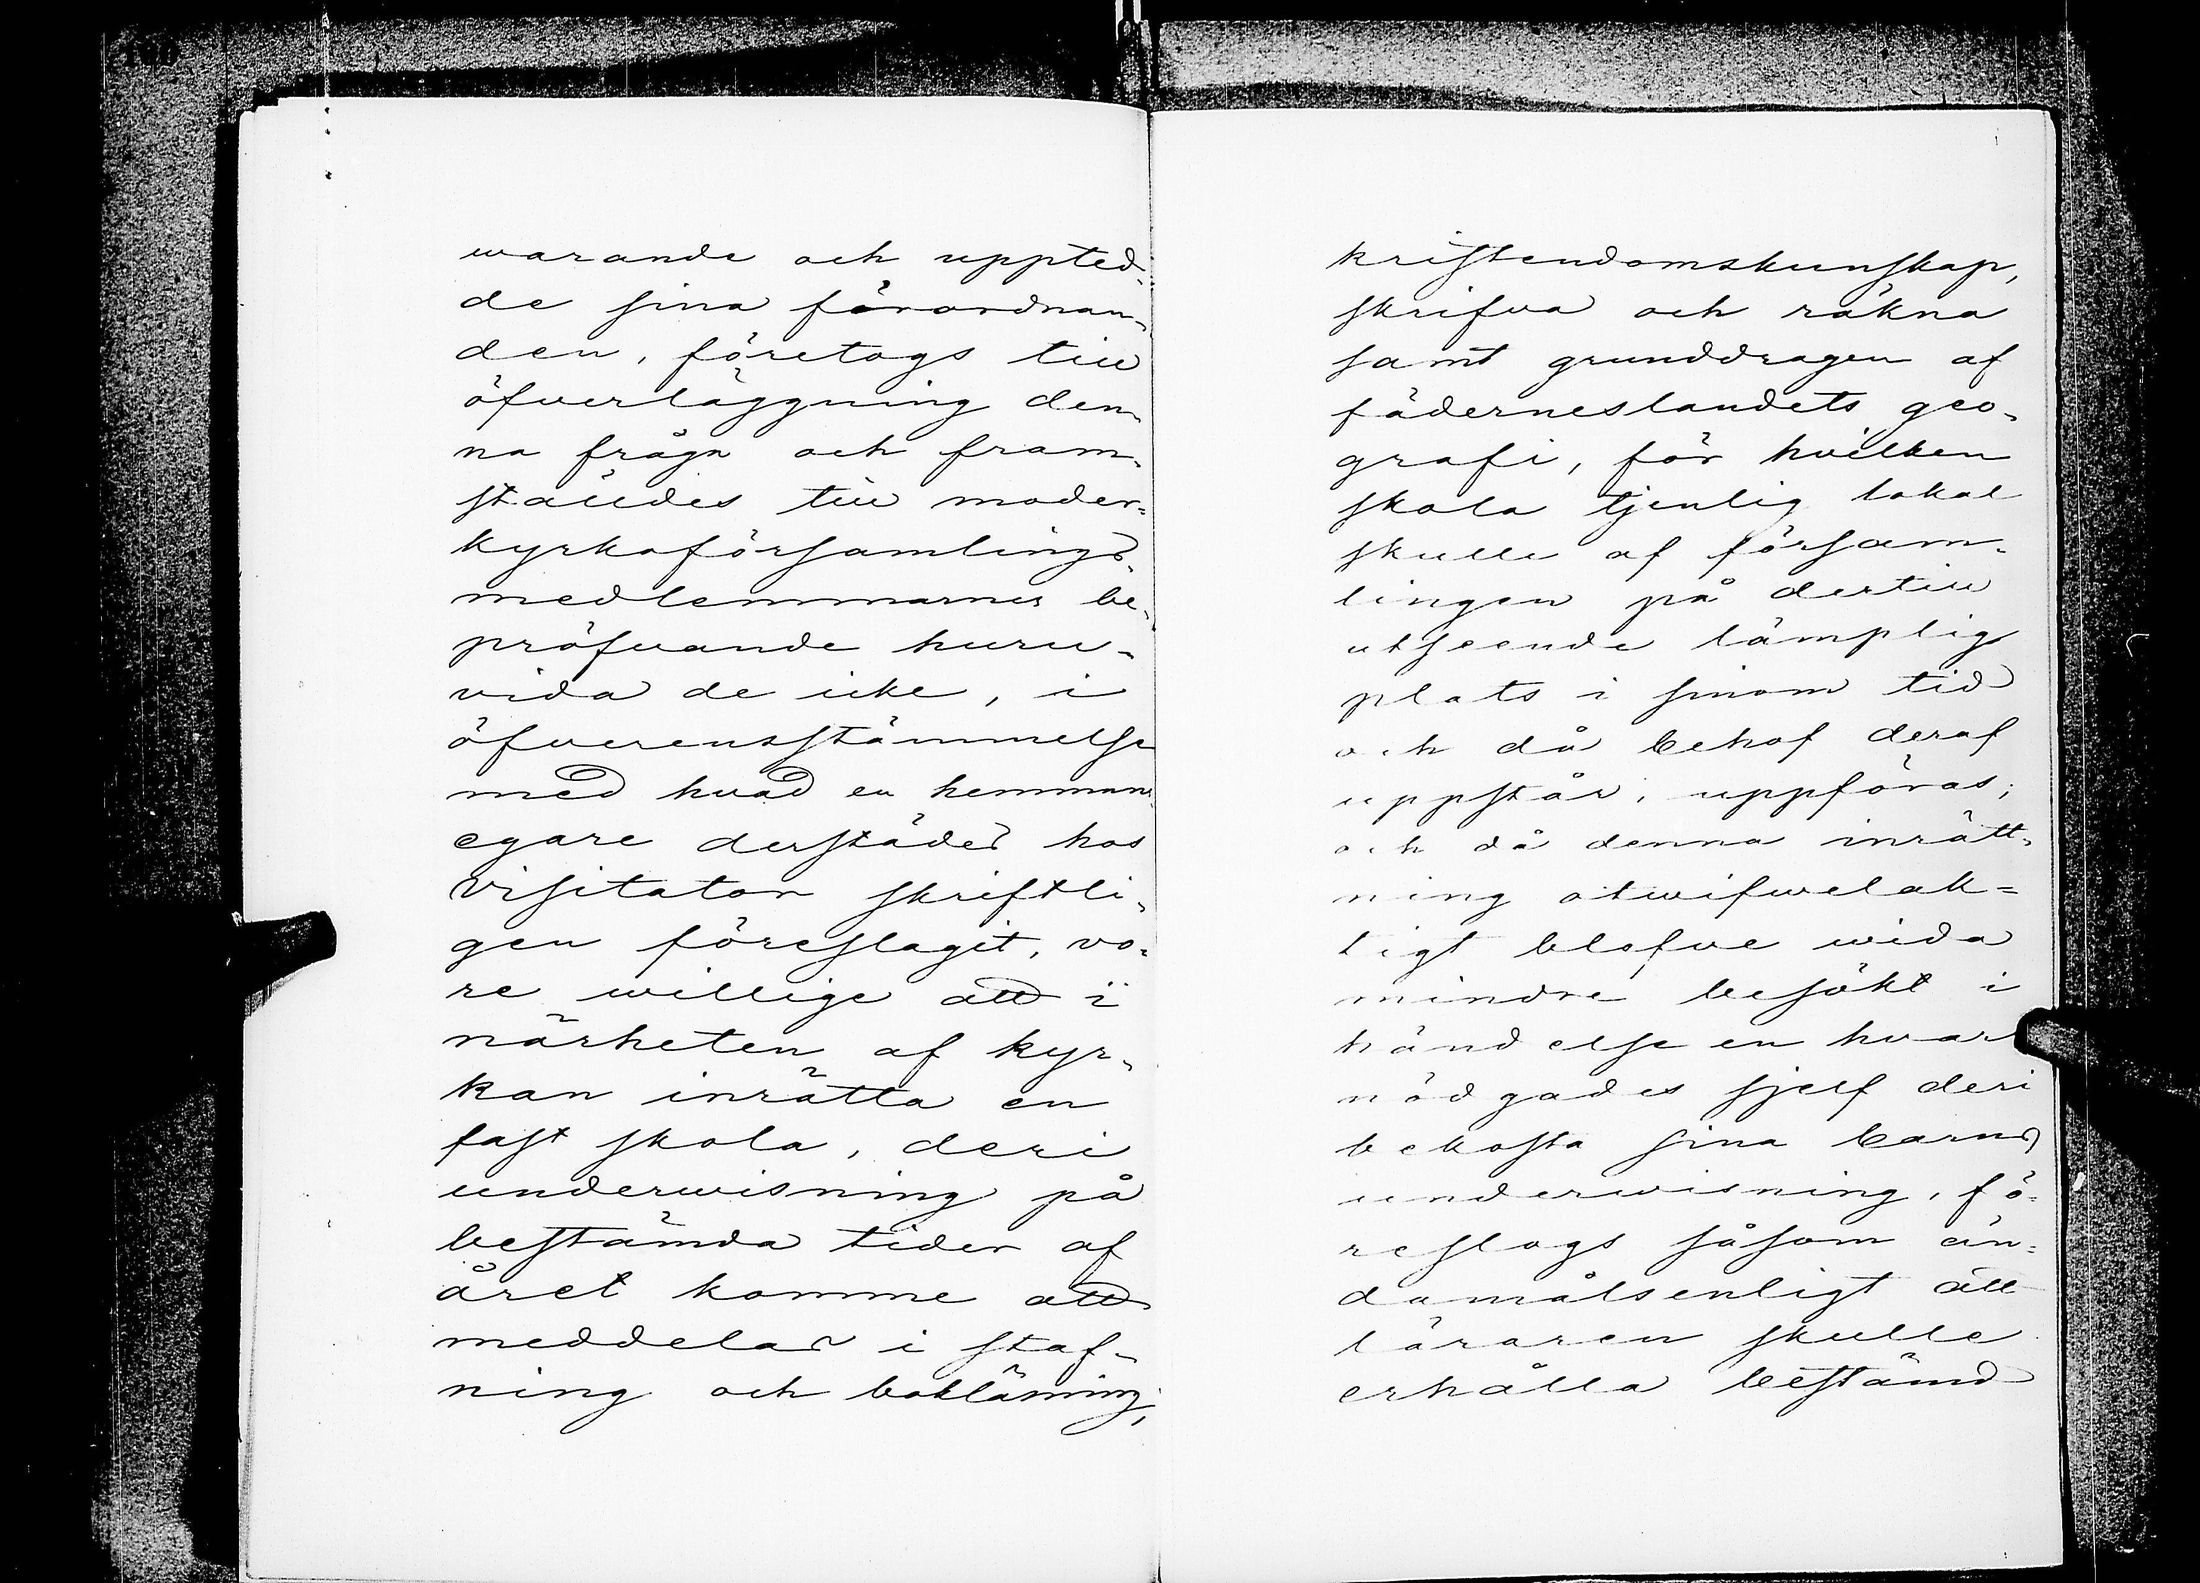 warande och uppted-
de sina förordnan-
den, företogs till
öfverläggning den-
na fråga och fram-
stäldes till moder-
kyrkoförsamlings-
medlemmarnes be-
pröfvande huru-
vida de icke, i
öfverensstämmelse
med hvad en hemmans
egare derstädes hos
visitator skriftli-
gen föreslagit, vo-
re willige att i
närheten af kyr-
kan inrätta en
fast skola, deri
underwisning på
bestämda tider af
året komme att
meddelas i staf-
ning och bokläsning,
kristendomskunskap,
skrifva och räkna
samt grunddragen af
fäderneslandets geo-
grafi, för hvilken
skola tjenlig lokal
skulle af försam-
lingen på dertill
utseende lämplig
plats i sinom tid
och då behof deraf
uppstår, uppföras;
och då denna inrätt-
ning otwifwelak-
tigt blefve wida
mindre besökt i
händelse en hvar
nödgades sjelf deri
bekosta sina barns
underwisning, fö-
reslogs såsom än-
damålsenligt att
läraren skulle
erhålla bestämd